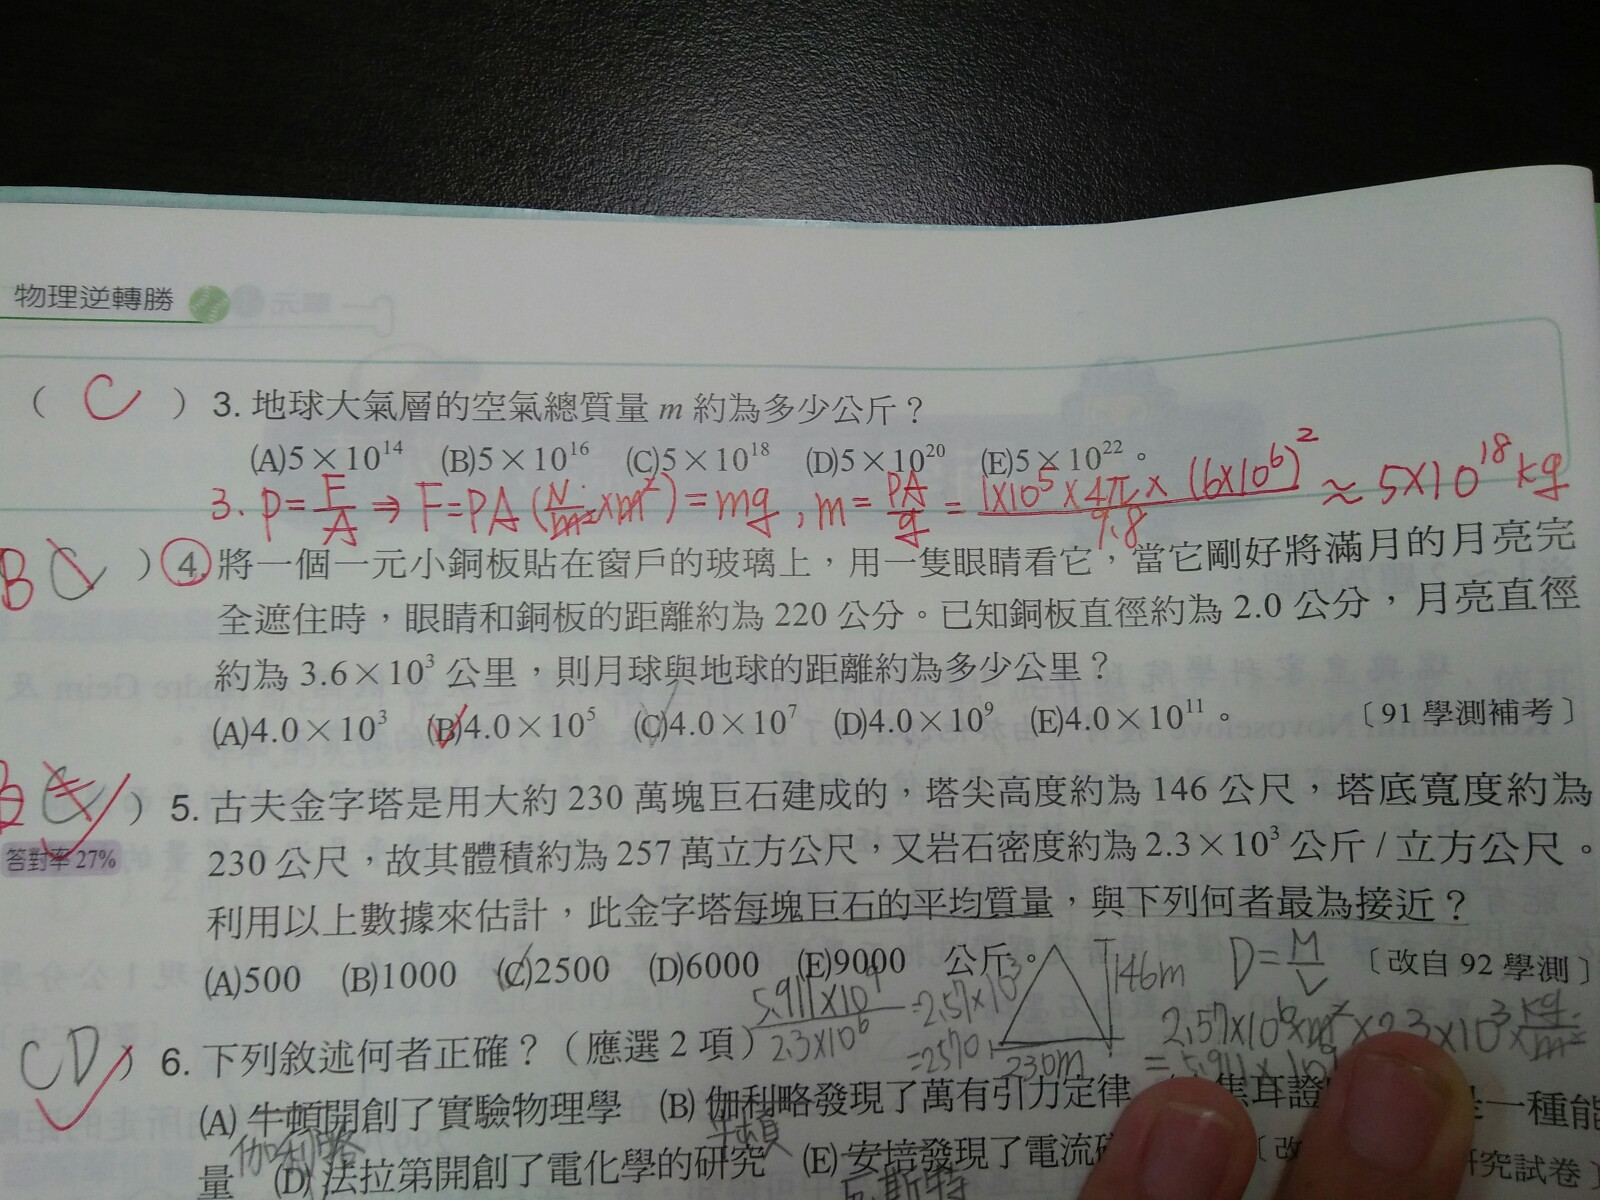 物理逆轉勝
( C ) 3. 地球大氣層的空氣總質量 m 約為多少公斤？
(A)5×10¹⁴ (B)5×10¹⁶ (C)5×10¹⁸ (D)5×10²⁰ (E)5×10²²。
3. P=F/A ⇒ F=PA(N/m²×m²)=mg, m=PA/g=1×10⁵×4π×(6×10⁶)²/9.8≈5×10¹⁸kg
B C ) 4. 將一個一元小銅板貼在窗戶的玻璃上，用一隻眼睛看它，當它剛好將滿月的月亮完
全遮住時，眼睛和銅板的距離約為 220 公分。已知銅板直徑約為 2.0 公分，月亮直徑
約為 3.6×10³ 公里，則月球與地球的距離約為多少公里？
(A)4.0×10³ (B)4.0×10⁵ (C)4.0×10⁷ (D)4.0×10⁹ (E)4.0×10¹¹。 〔91 學測補考〕
) 5. 古夫金字塔是用大約 230 萬塊巨石建成的，塔尖高度約為 146 公尺，塔底寬度約為
答對率 27%
230 公尺，故其體積約為 257 萬立方公尺，又岩石密度約為 2.3×10³ 公斤/立方公尺。
利用以上數據來估計，此金字塔每塊巨石的平均質量，與下列何者最為接近？
(A)500 (B)1000 (C)2500 (D)6000 (E)9000 公斤。 〔改自 92 學測〕
146m D=M/V
5.911×10⁹/2.3×10⁶=2.57×10³
=2570
230m
2.57×10⁶×m³×2.3×10³×kg/m³
=5.911×10⁹
CD ) 6. 下列敘述何者正確？（應選 2 項）
(A) 牛頓開創了實驗物理學 (B) 伽利略發現了萬有引力定律 焦耳證 是一種能
伽利略 牛頓
量 (D) 法拉第開創了電化學的研究 (E) 安培發現了電流磁 〔改 研究試卷〕
厄斯特